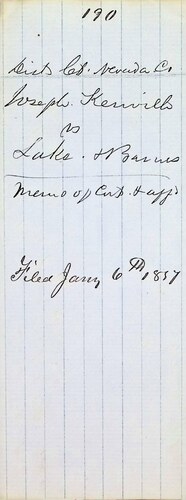 190
Dist Ct. Nevada Co
Joseph Kenvill
vs
Lake & Barnes
Memo of Cost & aff
Filed Jany 6th 1857